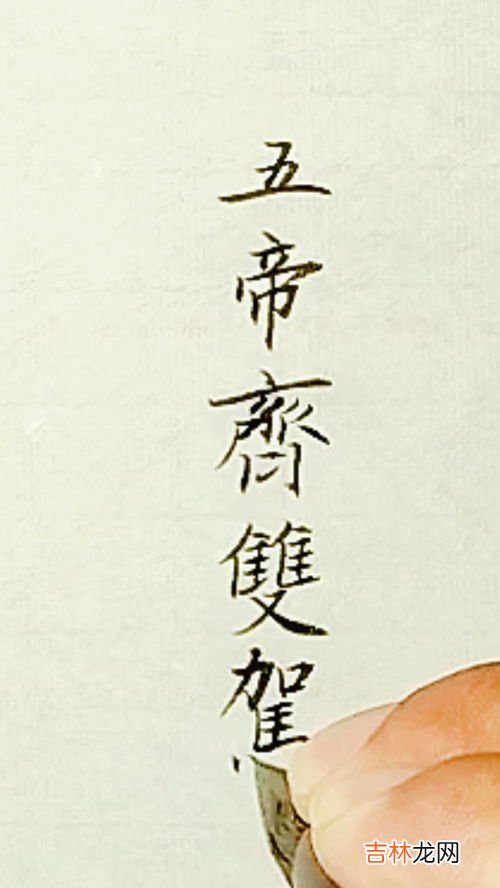 五帝齊雙駕
吉林龙网